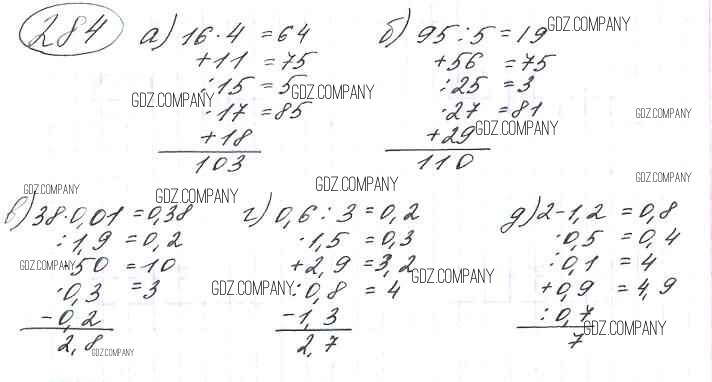 284
а) 16·4 = 64
+11 = 75
:15 = 5
·17 = 85
+18
103
б) 95:5 = 19
+56 = 75
:25 = 3
·27 = 81
+29
110
в) 38·0,01 = 0,38
:1,9 = 0,2
·50 = 10
·0,3 = 3
-0,2
2,8
г) 0,6:3 = 0,2
·1,5 = 0,3
+2,9 = 3,2
:0,8 = 4
-1,3
2,7
д) 2-1,2 = 0,8
·0,5 = 0,4
:0,1 = 4
+0,9 = 4,9
:0,7
7
GDZ.COMPANY
GDZ.COMPANY
GDZ.COMPANY
GDZ.COMPANY
GDZ.COMPANY
GDZ.COMPANY
GDZ.COMPANY
GDZ.COMPANY
GDZ.COMPANY
GDZ.COMPANY
GDZ.COMPANY
GDZ.COMPANY
GDZ.COMPANY
GDZ.COMPANY